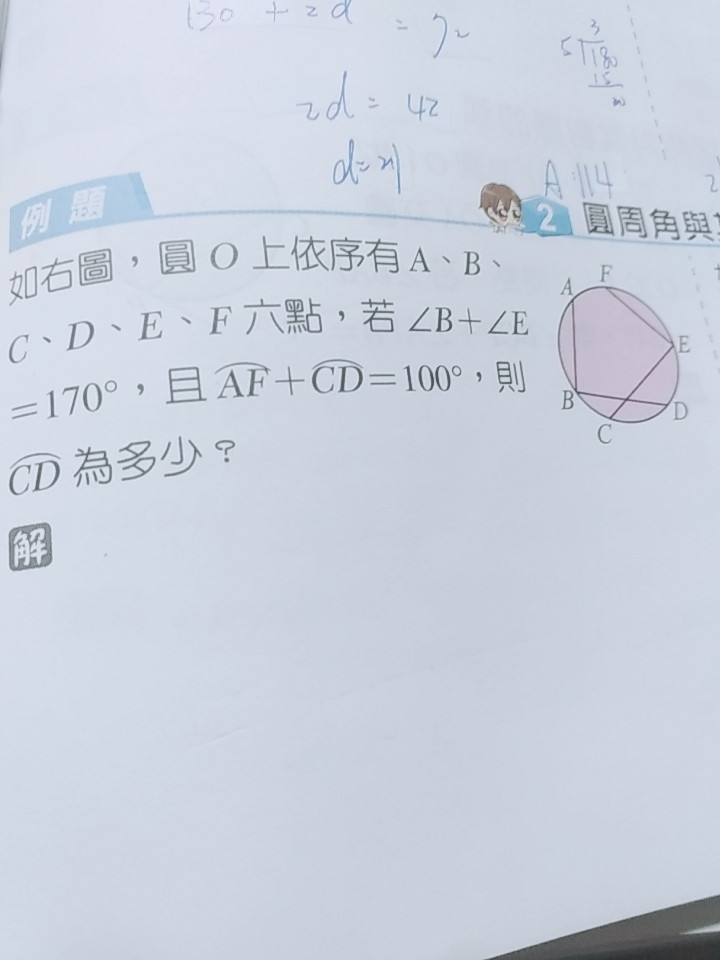 130 + 2d = 72
2d = 42
d = 21
3
5 180
15
A:114
例題
2 圓周角與
如右圖，圓 O 上依序有 A、B、
C、D、E、F 六點，若 ∠B+∠E
=170°，且 AF+CD=100°，則
CD 為多少？
解
A F
E
B
D
C